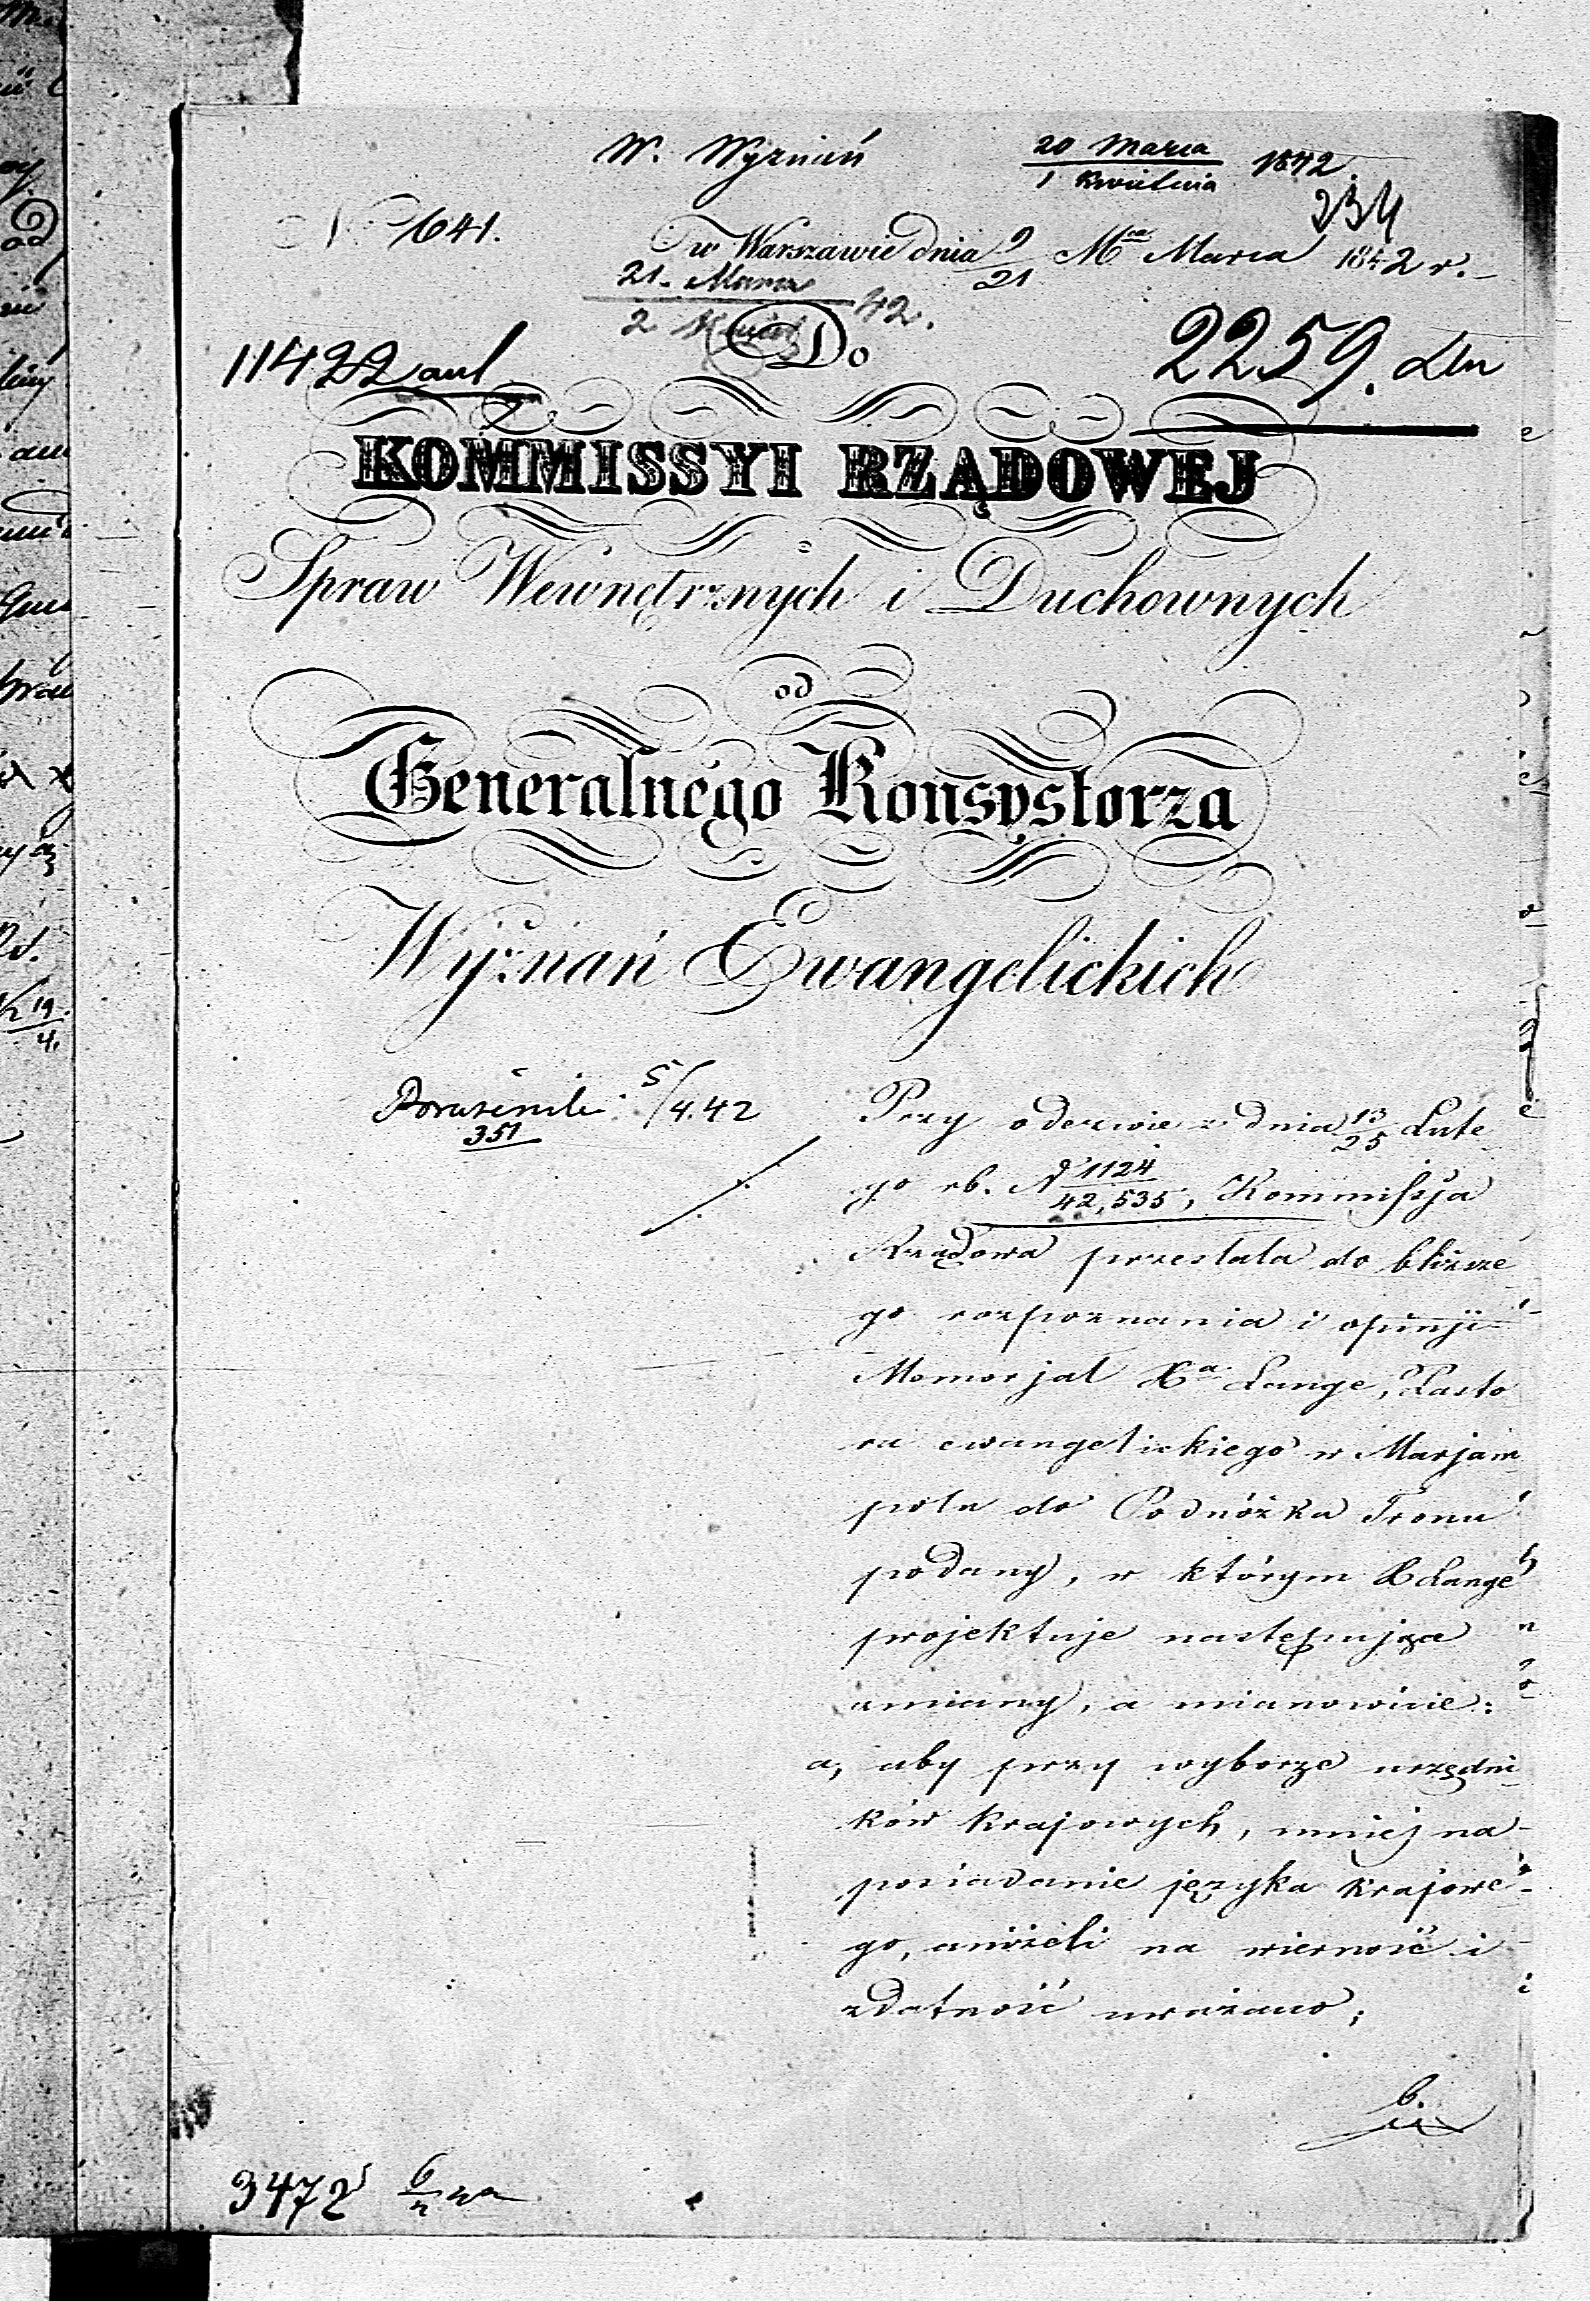 W. Wyznań
20 Marca
1 Kwietnia 1842.
234
N. 641.
w Warszawie dnia 9/21 Mca Marca 1842 r.
21. Marca
2 Kwiet 42.
Do
11422
2259.
KOMMISSYI RZĄDOWEJ
Spraw Wewnętrznych i Duchownych
od
Generalnego Konsystorza
Wyznań Ewangelickich
5/4.42
351
Przy odezwie z dnia 13/25 Lute-
go rb. N 1124/42,535, Kommissja
Rządowa przesłała do bliższe
go rozpoznania i opinji
Memorjał Xa Lange, Pasto
ra ewangelickiego w Marjam
polu do Podnóżka Tronu
podany, w którym X Lange
projektuje następujące
zmiany, a mianowicie:
a, aby przy wyborze urzędni
ków krajowych, mniej na
posiadanie języka krajowe-
go, aniżeli na wierność i
zdatność uważano;
b.
3472